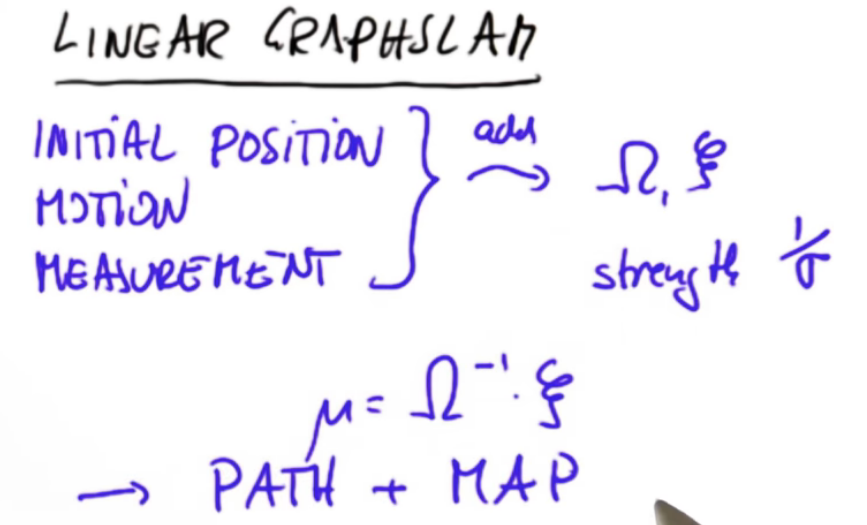 LINEAR GRAPHSLAM
INITIAL POSITION
MOTION
MEASUREMENT
add
Ω, ξ
strength 1/σ
μ = Ω⁻¹· ξ
→ PATH + MAP